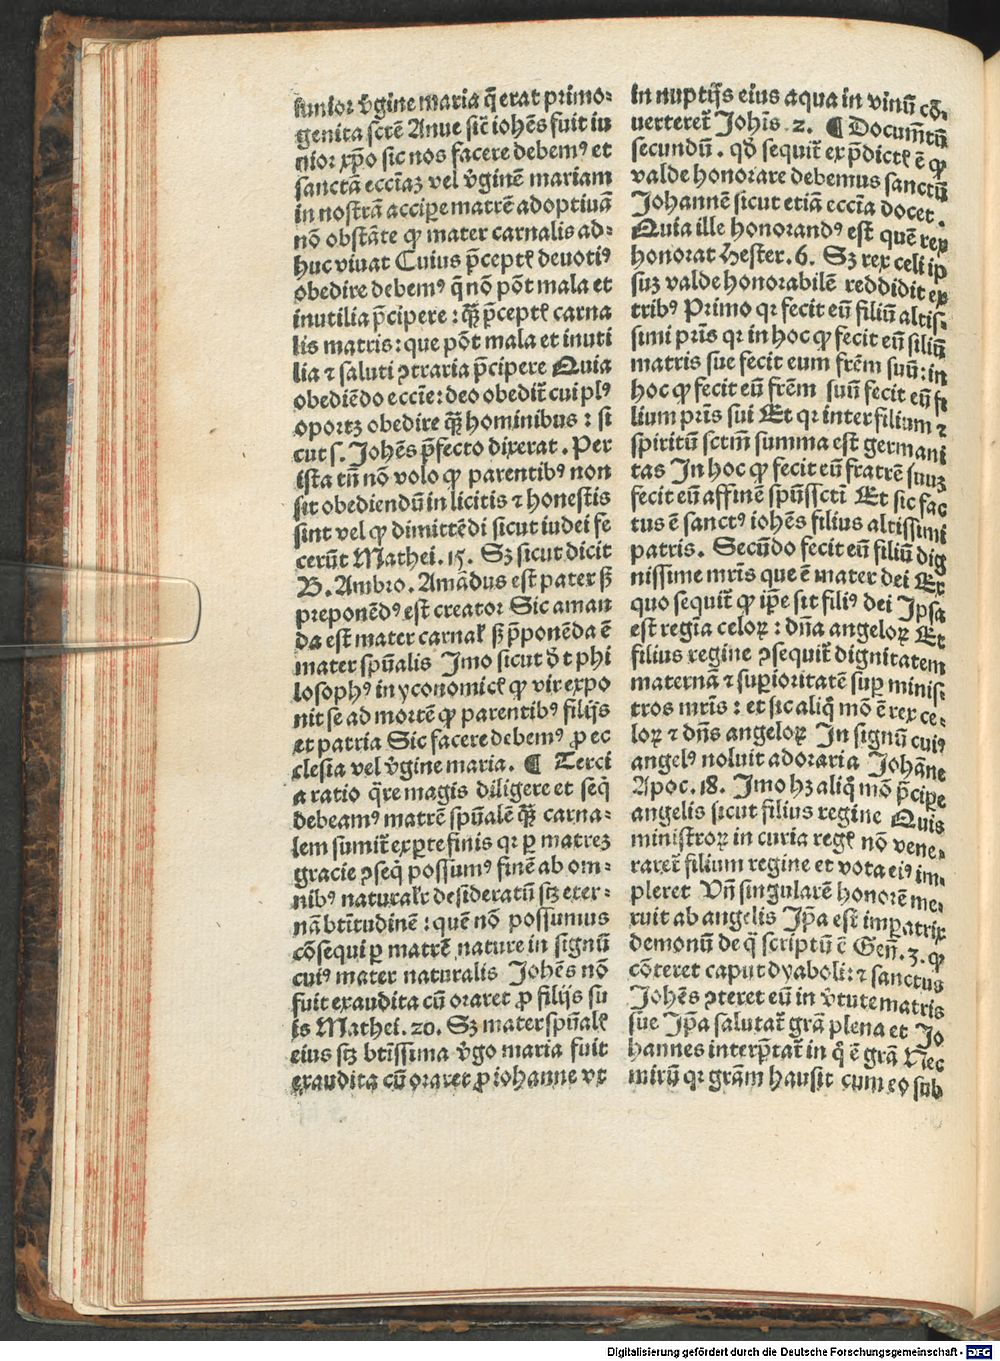 iunior v̄gine maria q̄ erat primo-
genita sct̄e Anne sic̄ iohēs fuit iu
nior xp̄o sic nos facere debemꝰ et
sanctā eccīaꝫ vel v̄ginē mariam
in nostrā accipe matrē adoptiuā
nō obstāte ꝙ mater carnalis ad-
huc viuat Cuius p̄ceptꝭ deuotiꝰ
obedire debemꝰ q̄ nō pōt mala et
inutilia p̄cipere : qꝫ̄ p̄ceptꝭ carna
lis matris: que pōt mala et inuti
lia ⁊ saluti ꝯtraria p̄cipere Quia
obediēdo eccīe: deo obedit̄ cui plꝰ
oportꝫ obedire qꝫ̄ hominibus : si
cut s. Johēs p̄fecto dixerat . Per
ista tn̄ nō volo ꝙ parentibꝰ non
sit obediendū in licitis ⁊ honestis
sint vel ꝙ dimittēdi sicut iudei fe
cerūt Mathei. 15. Sꝫ sicut dicit
B. Ambro. Amādus est pater sꝫ̄
preponēdꝰ est creator Sic aman
da est mater carnaꝉ sꝫ̄ p̄ponēda ē
mater spūalis Jmo sicut d̄t phi
losophꝰ in yconomicꝭ ꝙ vir expo
nit se ad mortē ꝙ parentibꝰ filijs
et patria Sic facere debemꝰ ꝓ ec
clesia vel v̄gine maria. ¶ Terci
a ratio q̄re magis diligere et seq̄
debeamꝰ matrē spūalē qꝫ̄ carna-
lem sumit̄ ex ꝑte finis qꝛ ꝑ matreꝫ
gracie ꝯseq̄ possumꝰ finē ab om-
nibꝰ naturalꝛ desideratū sꝫ eter-
nā btītudinē : quē nō possumus
cōsequi ꝑ matrē nature in signū
cuiꝰ mater naturalis Johēs nō
fuit exaudita cū oraret ꝓ filijs su
is Mathei. 20. Sꝫ mater spūalꝭ
eius sꝫ btīssima v̄go maria fuit
exaudita cū oraret ꝓ iohanne vt
in nuptijs eius aqua in vinū cō-
uerteret̄ Johīs. 2. ¶ Documn̄tū
secundū. qd̄ sequit̄ ex p̄dictꝭ ē ꝙ
valde honorare debemus sanctū
Johannē sicut etiā eccīa docet .
Quia ille honorandꝰ est quē rex
honorat Hester. 6. Sꝫ rex celi ip
suꝫ valde honorabilē reddidit ex
tribꝰ Primo qꝛ fecit eū filiū altis-
simi pr̄is qꝛ in hoc ꝙ fecit eū filiū
matris sue fecit eum frēm suū: in
hoc ꝙ fecit eū frēm suū fecit eū fi
lium pr̄is sui Et qꝛ inter filium ⁊
spiritū sctm̄ summa est germani
tas Jn hoc ꝙ fecit eū fratrē suuꝫ
fecit eū affinē spūssctī Et sic fac
tus ē sanctꝰ iohēs filius altissimi
patris. Secūdo fecit eū filiū dig
nissime mr̄is que ē mater dei Ex
quo sequit̄ ꝙ ipe sit filiꝰ dei Jpsa
est regīa celoꝝ : dn̄a angeloꝝ Et
filius regine ꝯsequit̄ dignitatem
maternā ⁊ suꝑioritatē suꝑ minis-
tros mr̄is : et sic aliq̄ mō ē rex ce-
loꝝ ⁊ dn̄s angeloꝝ Jn signū cuiꝰ
angelꝰ noluit adorari a Johāne
Apoc. 18. Jmo hꝫ aliq̄ mō p̄cipe
angelis sicut filius regine Quis
ministroꝝ in curia regꝭ nō vene-
raret̄ filium regine et vota eiꝰ im-
pleret Vn̄ singularē honorē me-
ruit ab angelis Jp̄a est imꝑatrix
demonū de q̄ scriptū ē Gen̄. 3. ꝙ
cōteret caput dyaboli: ⁊ sanctus
Johēs ꝯteret eū in v̄tute matris
sue Jp̄a salutat̄ grā plena et Jo
hannes interp̄tat̄ in q̄ ē grā Nec
mirū qꝛ grām hausit cum eo sub
Digitalisierung gefördert durch die Deutsche Forschungsgemeinschaft - DFG